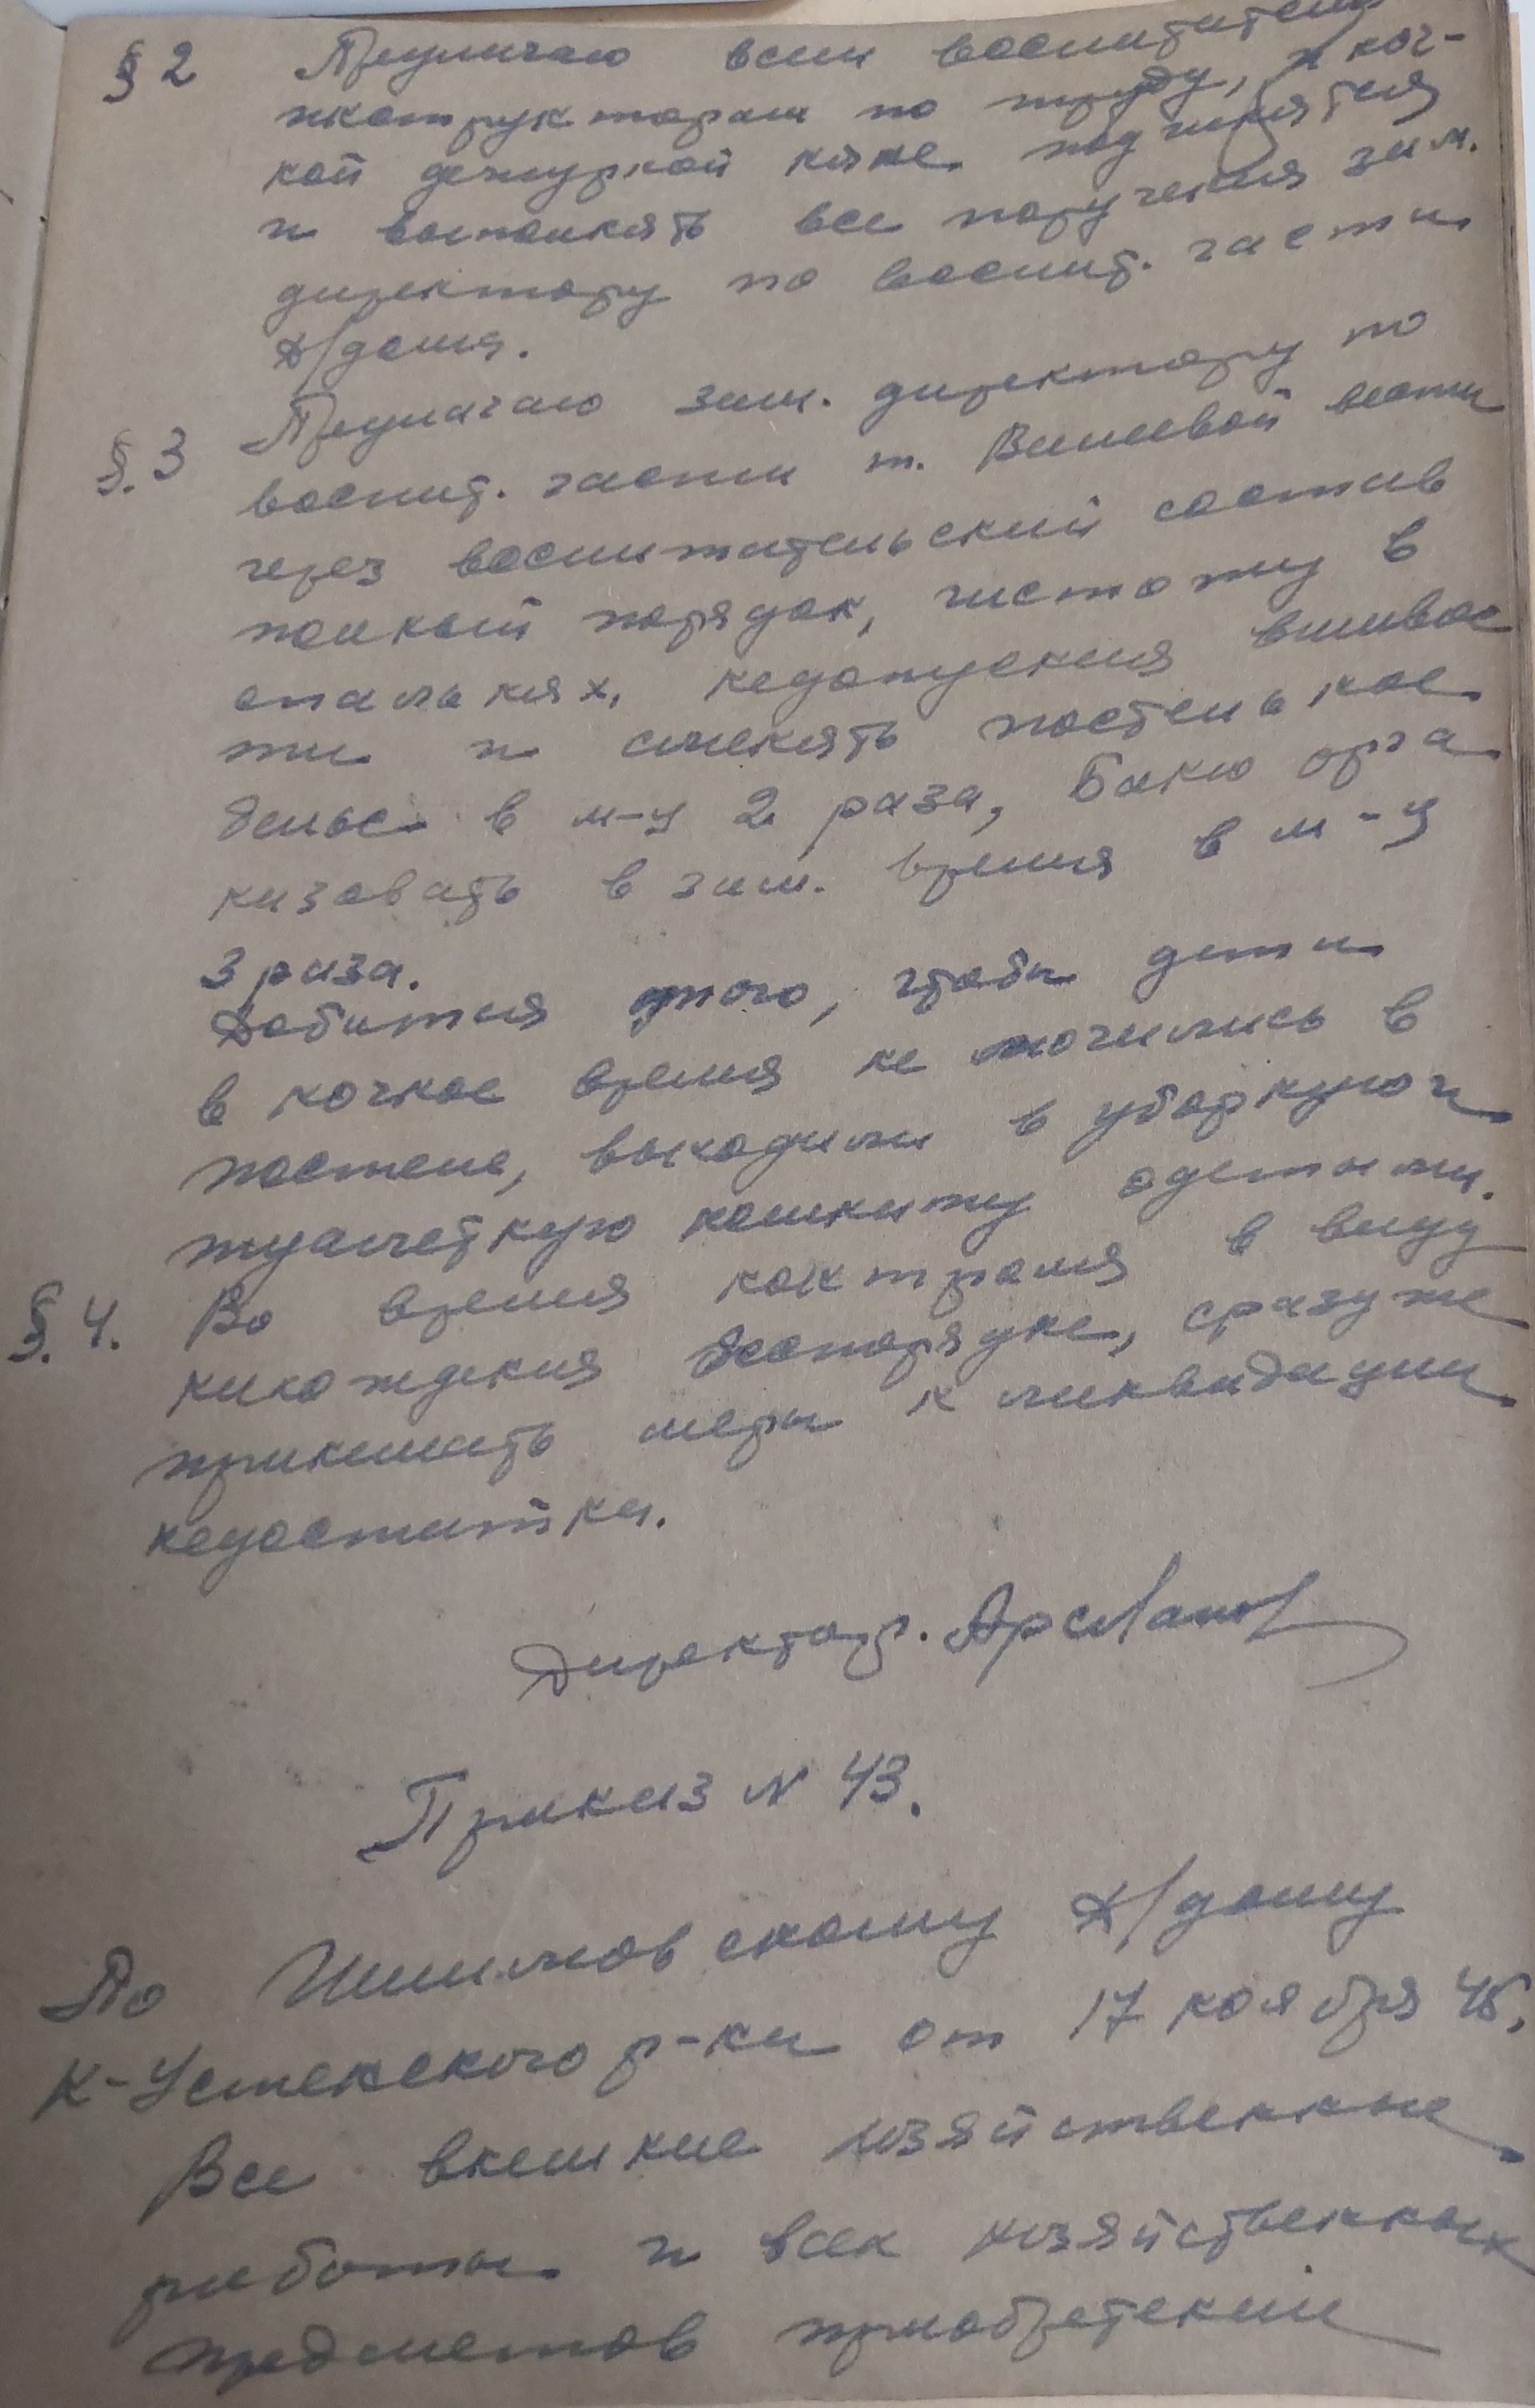 § 2 Предлагаю всем воспитателям
инструкторам по труду, и ноч-
ной дежурной няне подчинятся
и выполнять все поручения зам.
директору по воспит. части
д/дома.
§. 3 Предлагаю зам. директору по
воспит. части т. Вишевой вести
через воспитательский состав
полный порядок, чистоту в
спальнях, недопускения вшивос
ти и сменять постельное
белье в м-ц 2 раза, баню орга
низовать в зим. время в м-ц
3 раза.
Добится того, чтобы дети
в ночное время не мочились в
постеле, выходили в уборную и
туалетную комнату одетыми.
§. 4. Во время контроля в виду
нахождения беспорядке, сразу же
принимать меры к ликвидации
недостатка.
Директор. Арсланов
Приказ N 43.
По Шишмовскому Д/дому
К-Устенского р-на от 17 ноября 45.
Все внешние хозяйственные
работы и всех хозяйственных
предметов приобретении